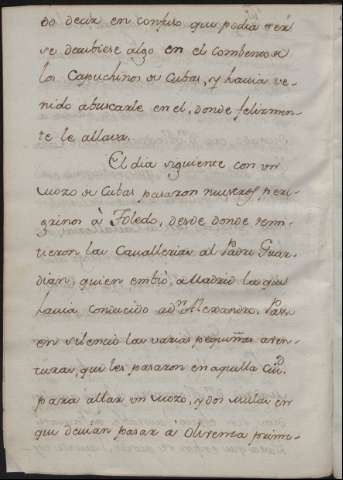 do decir en confuso que podia ser
se deubiese algo en el combento de
los Capuchinos de Cubas, y hauia ve-
nido abuscarle en el, donde felizmen-
te le allara.
El dia siguiente con un
mozo de Cubas pasaron nuestros peri-
grinos à Toledo, desde donde remi-
tieron las Cavallerias al Padre Guar-
dian, quien embiò, a Madrid la que
hauia conducido a Dn. Alexandro. Paso
en silencio las varias pequeñas aven-
turas, que les pasaron en aquella Ciud.
para allar un mozo, y dos mulas en
que deuian pasar a Olivenza primi-